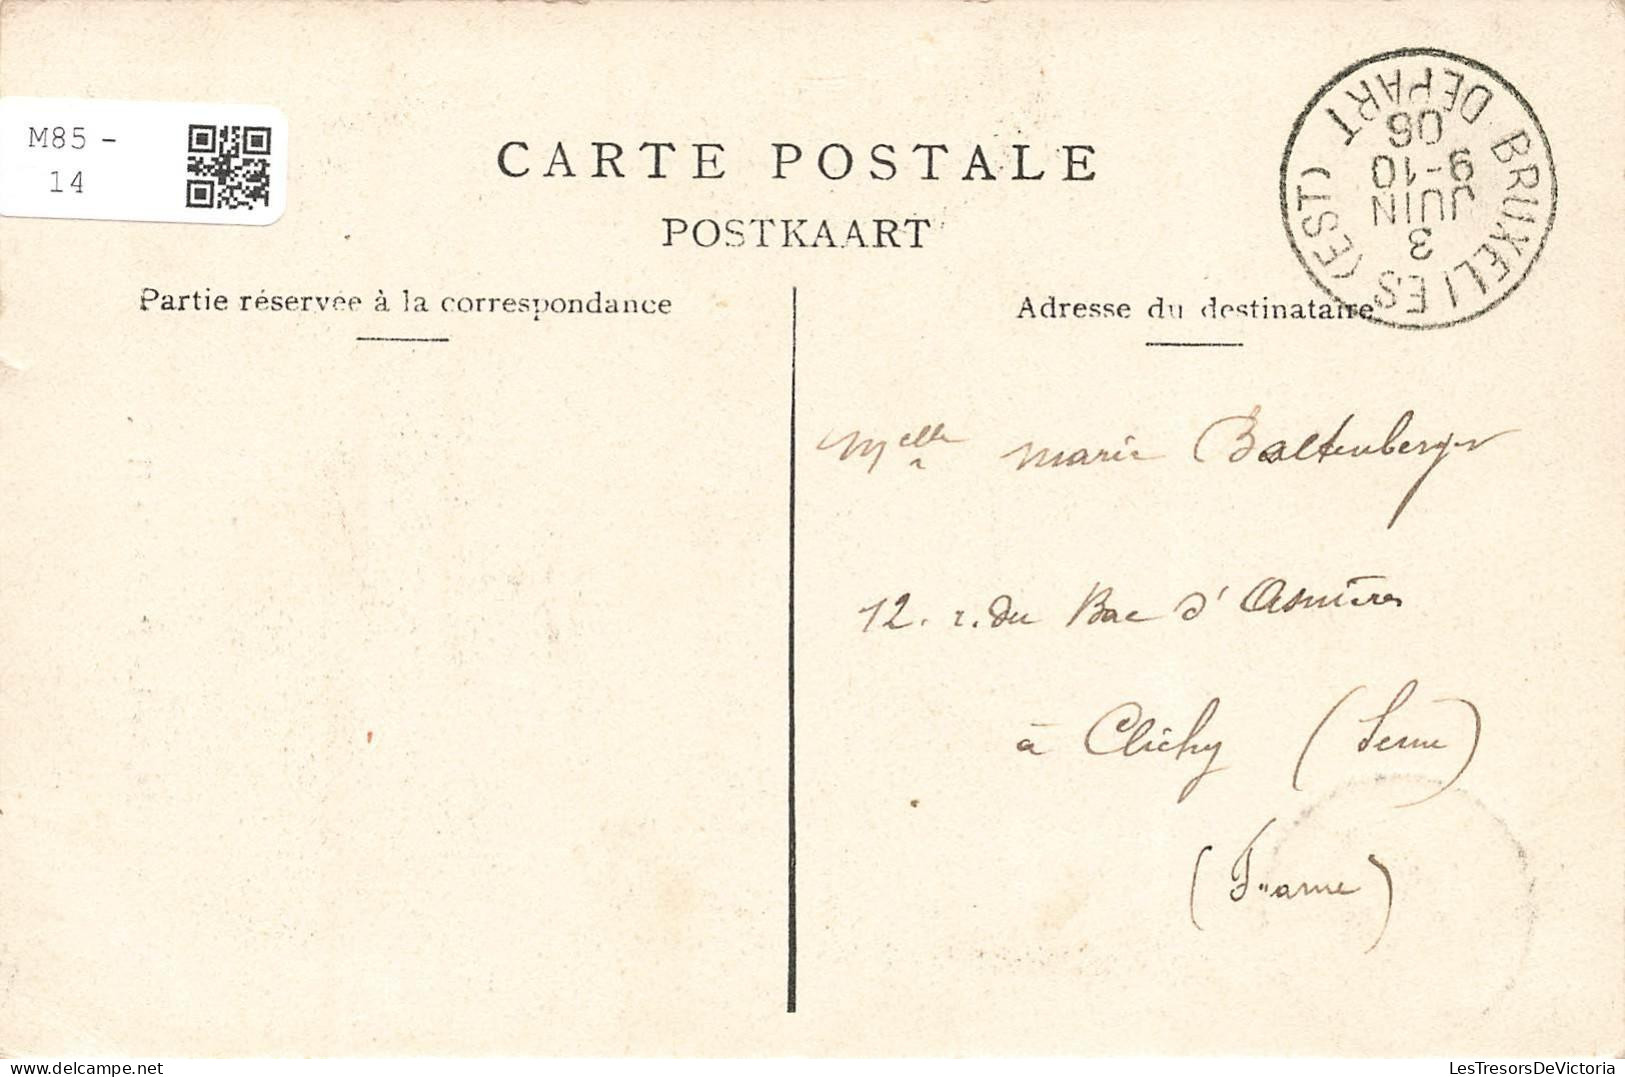 M85 -
14
CARTE POSTALE
POSTKAART
Partie réservée à la correspondance
Adresse du destinataire
BRUXELLES (EST)
DEPART
3
JUIN
9-10
06
Melle Marie Baltenberger
12. r. du Bac d'Asnières
à Clichy (Seine)
(France)
LesTresorsDeVictoria.com